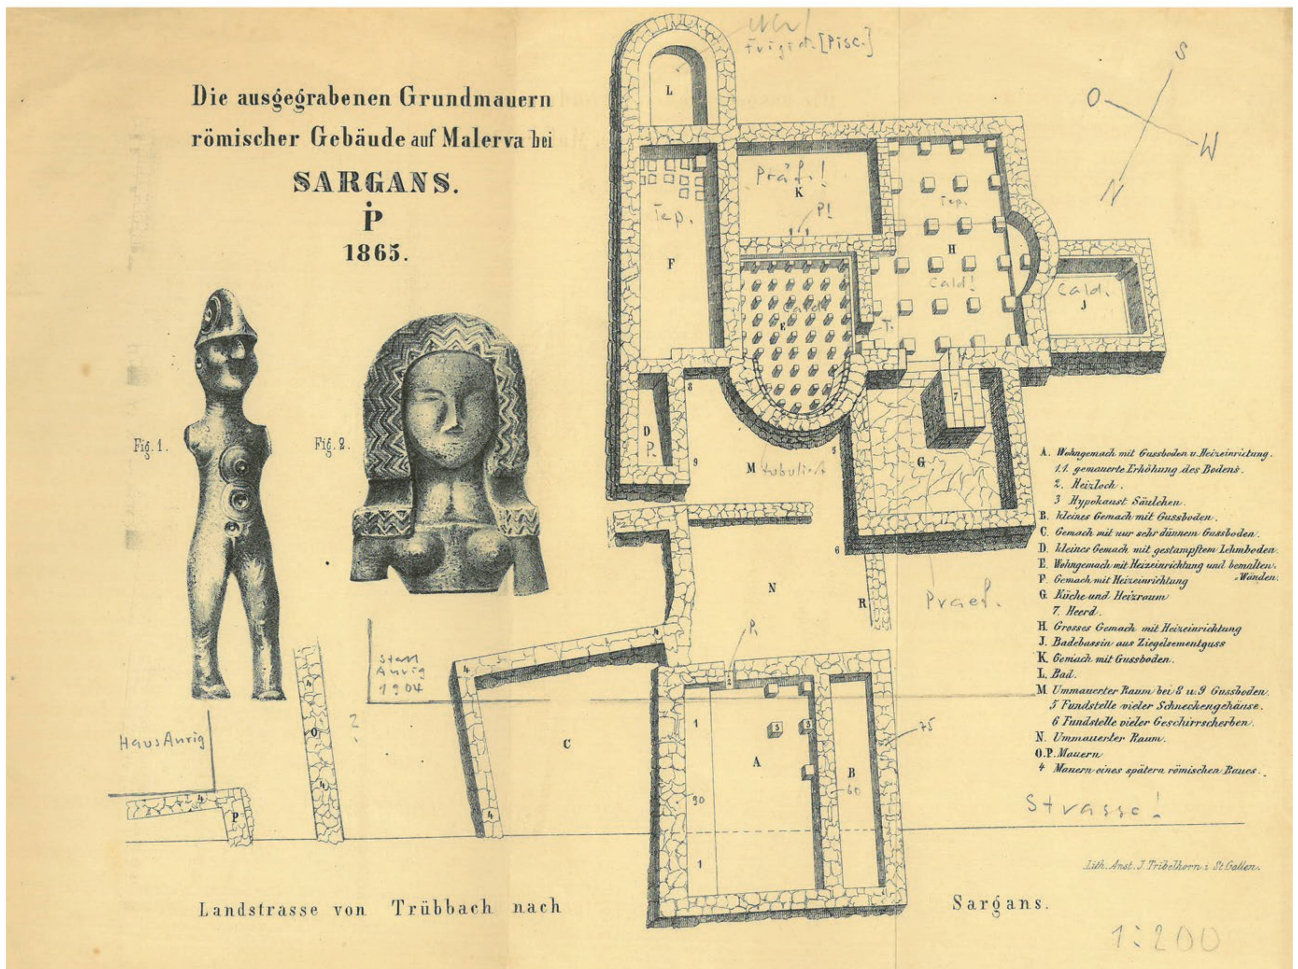 Die ausgegrabenen Grundmauern
römischer Gebäude auf Malerva bei
SARGANS.
iP
1865.
Frigid. [Pisc.]
S
O
W
N
L
Präf.!
K
P!
Tep.
F
Tep.
H
Cald!
Cald.
J
E
T.
8
D
P.
9
M tubuliert
5
7
G
6
Fig. 1.
Fig. 2.
N
R
Praef.
P.
4
4
2
Stall
Aurig
1904
4
O
?
Haus Aurig
C
1
3
3
A
B
75
90
60
4
4
4
P
1
A. Wohngemach mit Gussboden u. Heizeinrichtung.
1.1. gemauerte Erhöhung des Bodens.
2. Heizloch.
3 Hypokaust Säulchen.
B. kleines Gemach mit Gussboden.
C. Gemach mit nur sehr dünnem Gussboden.
D. kleines Gemach mit gestampftem Lehmboden.
E. Wohngemach mit Heizeinrichtung und bemalten Wänden.
F. Gemach mit Heizeinrichtung
G. Küche und Heizraum
7. Heerd.
H. Grosses Gemach mit Heizeinrichtung
J. Badebassin aus Ziegelcementguss
K. Gemach mit Gussboden.
L. Bad.
M Ummauerter Raum bei 8 u. 9 Gussboden.
5 Fundstelle vieler Schneckengehäuse.
6 Fundstelle vieler Geschirrscherben.
N. Ummauerter Raum.
O.P. Mauern
4 Mauern eines spätern römischen Baues.
Strasse!
Lith. Anst. J. Tribelhorn i. St. Gallen.
Landstrasse von Trübbach nach Sargans.
1:200